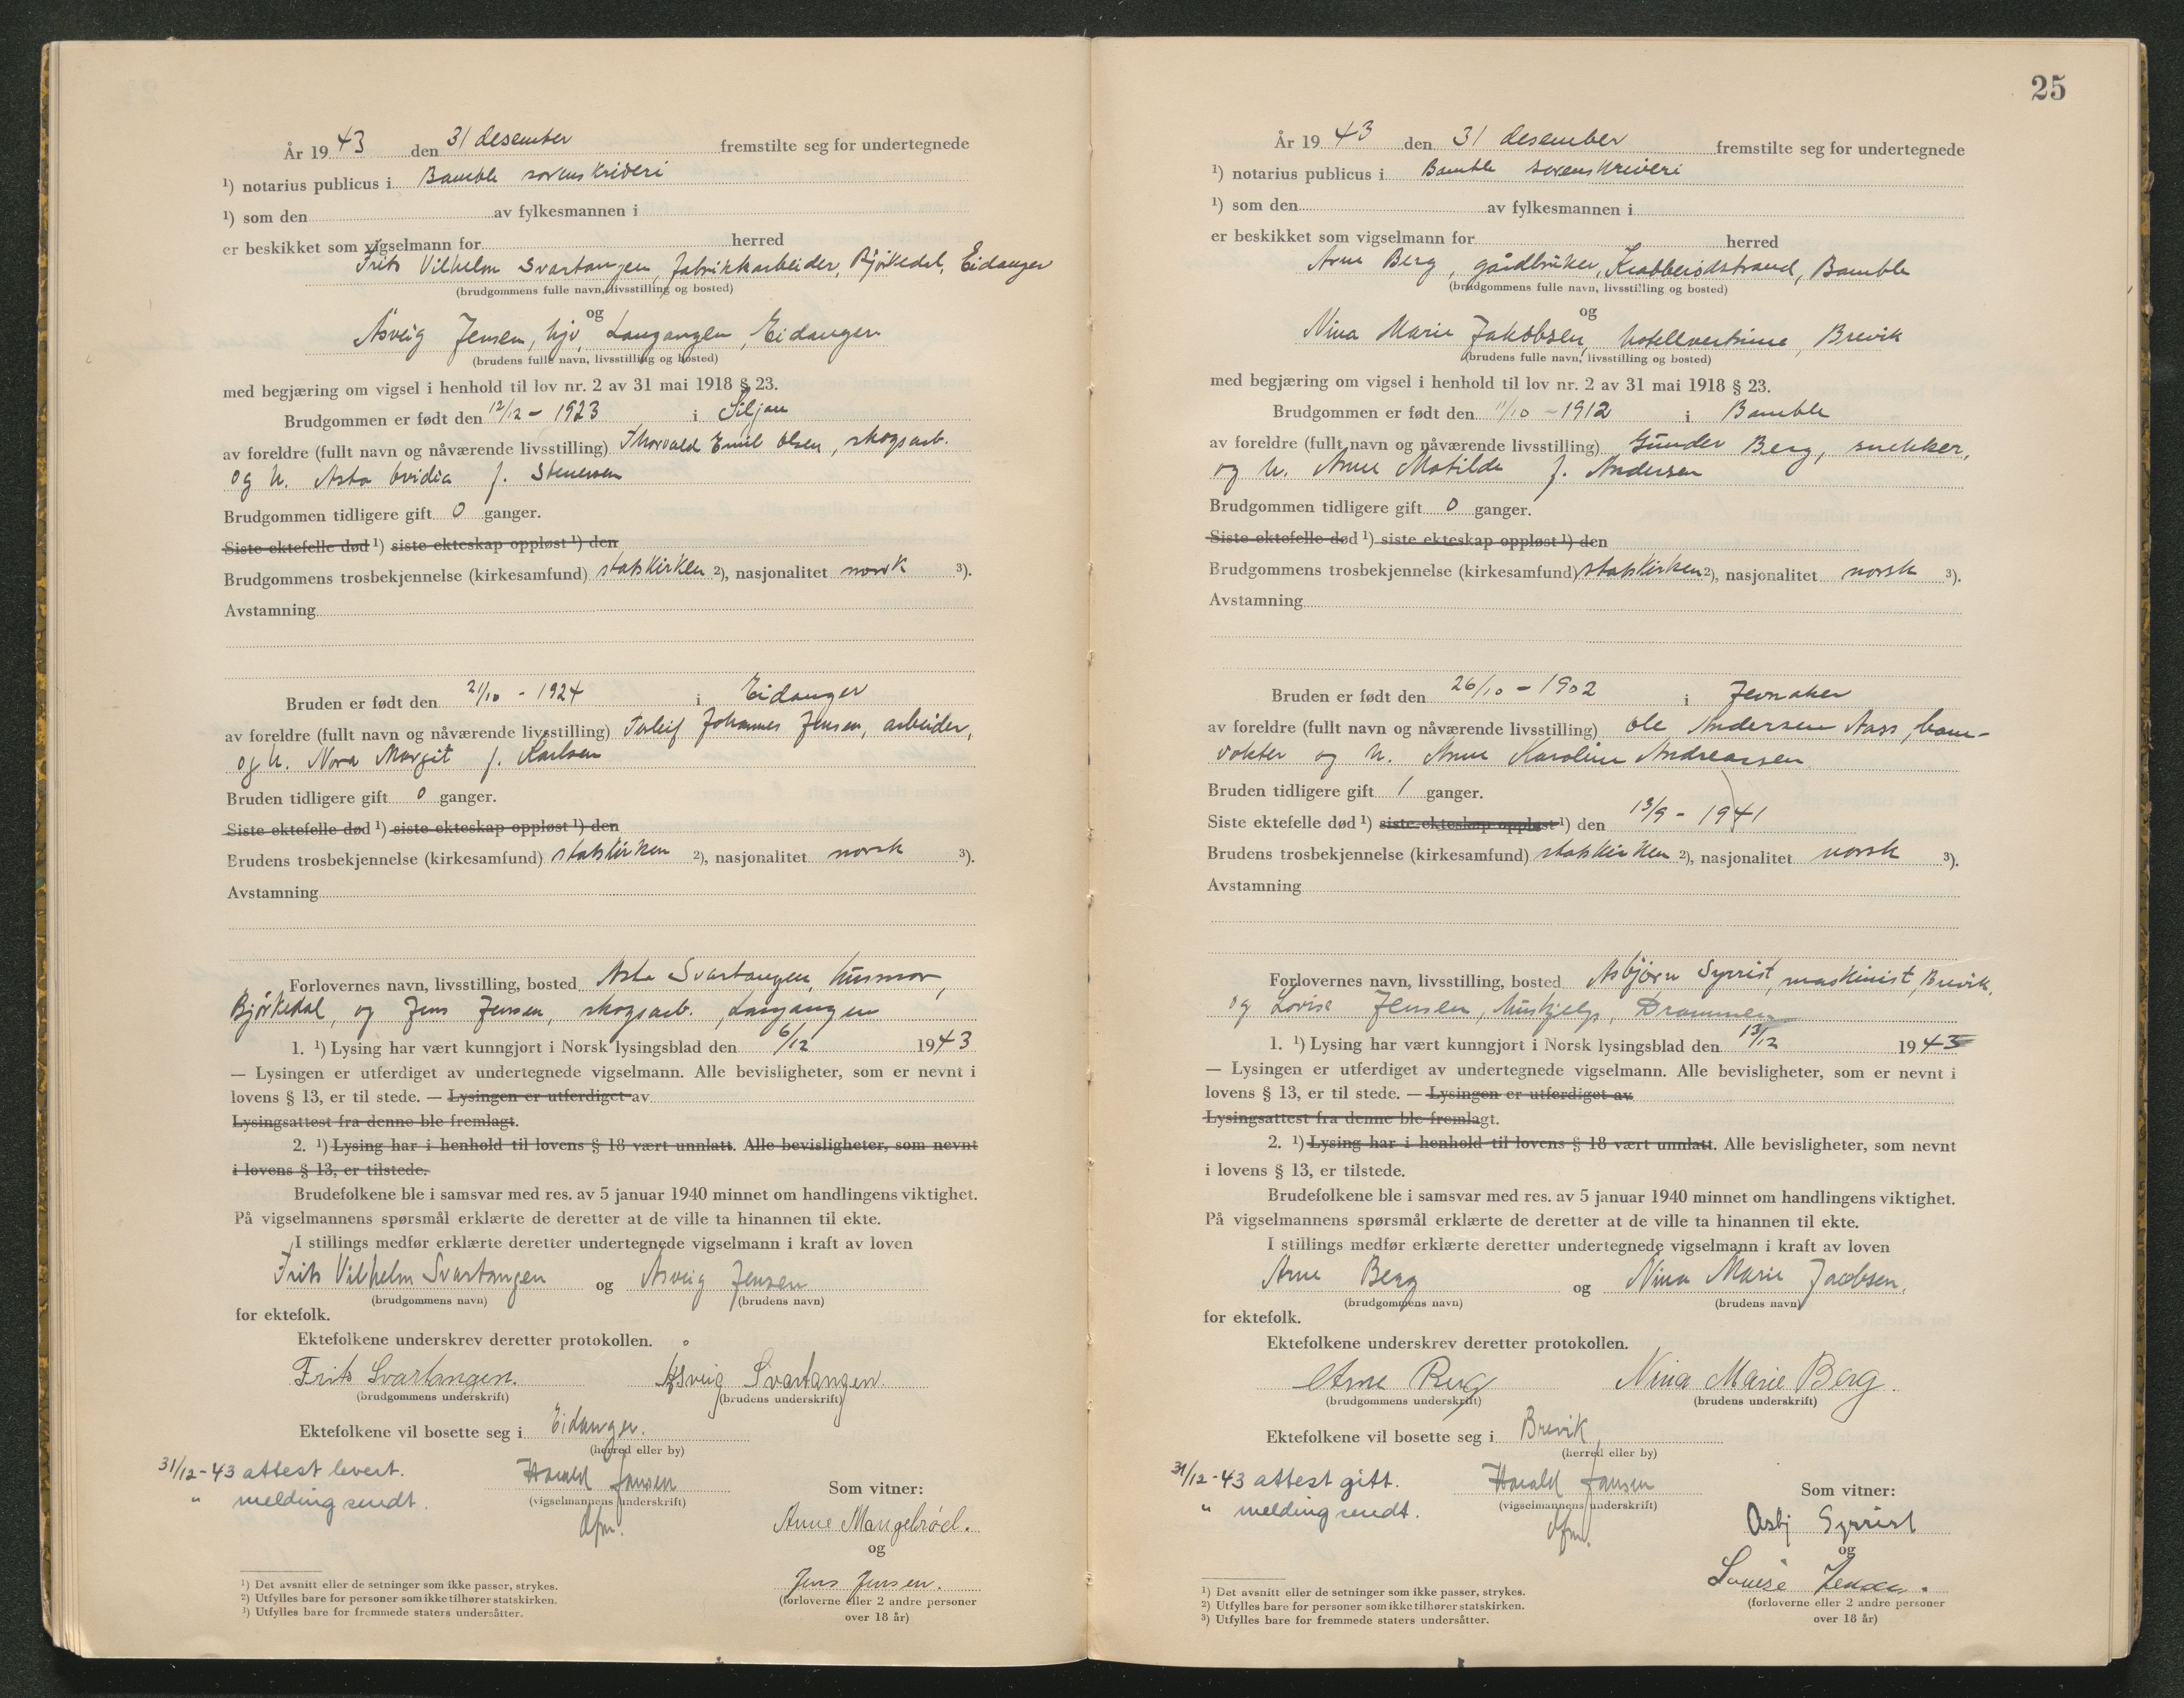 År 19 43 den 31 desember fremstilte seg for undertegnede
¹) notarius publicus i Bamble sorenskriveri
¹) som den av fylkesmannen i
er beskikket som vigselmann for herred
Frits Vilhelm Svartangen, fabrikkarbeider, Bjørkedal, Eidanger
(brudgommens fulle navn, livsstilling og bosted)
og
Åsveig Jensen, hjv, Langangen, Eidanger
(brudens fulle navn, livsstilling og bosted)
med begjæring om vigsel i henhold til lov nr. 2 av 31 mai 1918 § 23.
Brudgommen er født den 12/12 - 1923 i Siljan
av foreldre (fullt navn og nåværende livsstilling) Thorvald Emil Olsen, skogsarb.
og h. Asta Ovidia f. Stenersen
Brudgommen tidligere gift 0 ganger.
Siste ektefelle død ¹) siste ekteskap oppløst ¹) den
Brudgommens trosbekjennelse (kirkesamfund) statskirken ²), nasjonalitet norsk ³).
Avstamning
Bruden er født den 21/10 - 1924 i Eidanger
av foreldre (fullt navn og nåværende livsstilling) Torleif Johannes Jensen, arbeider,
og h. Nora Margit f. Karlsen
Bruden tidligere gift 0 ganger.
Siste ektefelle død ¹) siste ekteskap oppløst ¹) den
Brudens trosbekjennelse (kirkesamfund) statskirken ²), nasjonalitet norsk ³).
Avstamning
Forlovernes navn, livsstilling, bosted Asta Svartangen, husmor,
Bjørkedal, og Jens Jensen, skogsarb., Langangen
1. ¹) Lysing har vært kunngjort i Norsk lysingsblad den 6/12 19 43
— Lysingen er utferdiget av undertegnede vigselmann. Alle bevisligheter, som er nevnt i
lovens § 13, er til stede. — Lysingen er utferdiget av
Lysingsattest fra denne ble fremlagt.
2. ¹) Lysing har i henhold til lovens § 18 vært unnlatt. Alle bevisligheter, som nevnt
i lovens § 13, er tilstede.
Brudefolkene ble i samsvar med res. av 5 januar 1940 minnet om handlingens viktighet.
På vigselmannens spørsmål erklærte de deretter at de ville ta hinannen til ekte.
I stillings medfør erklærte deretter undertegnede vigselmann i kraft av loven
Frits Vilhelm Svartangen og Åsveig Jensen
(brudgommens navn) (brudens navn)
for ektefolk.
Ektefolkene underskrev deretter protokollen.
Frits Svartangen. Åsveig Svartangen.
(brudgommens underskrift) (brudens underskrift)
Ektefolkene vil bosette seg i Eidanger.
(herred eller by)
31/12-43 attest levert. Harald Jansen Som vitner:
" melding sendt. (vigselmannens underskrift)
dfm. Anne Mangelrød.
og
Jens Jensen.
(forloverne eller 2 andre personer
over 18 år)
¹) Det avsnitt eller de setninger som ikke passer, strykes.
²) Utfylles bare for personer som ikke tilhører statskirken.
³) Utfylles bare for fremmede staters undersåtter.
25
År 19 43 den 31 desember fremstilte seg for undertegnede
¹) notarius publicus i Bamble sorenskriveri
¹) som den av fylkesmannen i
er beskikket som vigselmann for herred
Arne Berg, gårdbruker, Krabberødstrand, Bamble
(brudgommens fulle navn, livsstilling og bosted)
og
Nina Marie Jakobsen, hotellvertinne, Brevik
(brudens fulle navn, livsstilling og bosted)
med begjæring om vigsel i henhold til lov nr. 2 av 31 mai 1918 § 23.
Brudgommen er født den 11/10 - 1912 i Bamble
av foreldre (fullt navn og nåværende livsstilling) Gunder Berg, snekker,
og h. Anne Matilde f. Andersen
Brudgommen tidligere gift 0 ganger.
Siste ektefelle død ¹) siste ekteskap oppløst ¹) den
Brudgommens trosbekjennelse (kirkesamfund) statskirken ²), nasjonalitet norsk ³).
Avstamning
Bruden er født den 26/10 - 1902 i Jevnaker
av foreldre (fullt navn og nåværende livsstilling) Ole Andersen Aass, bom-
vokter og h. Anne Karoline Andreassen
Bruden tidligere gift 1 ganger.
Siste ektefelle død ¹) siste ekteskap oppløst ¹) den 13/9 - 1941
Brudens trosbekjennelse (kirkesamfund) statskirken ²), nasjonalitet norsk ³).
Avstamning
Forlovernes navn, livsstilling, bosted Asbjørn Syrrist, maskinist, Brevik,
og Lovise Jensen, hushjelp, Drammen
1. ¹) Lysing har vært kunngjort i Norsk lysingsblad den 13/12 19 43
— Lysingen er utferdiget av undertegnede vigselmann. Alle bevisligheter, som er nevnt i
lovens § 13, er til stede. — Lysingen er utferdiget av
Lysingsattest fra denne ble fremlagt.
2. ¹) Lysing har i henhold til lovens § 18 vært unnlatt. Alle bevisligheter, som nevnt
i lovens § 13, er tilstede.
Brudefolkene ble i samsvar med res. av 5 januar 1940 minnet om handlingens viktighet.
På vigselmannens spørsmål erklærte de deretter at de ville ta hinannen til ekte.
I stillings medfør erklærte deretter undertegnede vigselmann i kraft av loven
Arne Berg og Nina Marie Jacobsen.
(brudgommens navn) (brudens navn)
for ektefolk.
Ektefolkene underskrev deretter protokollen.
Arne Berg Nina Marie Berg.
(brudgommens underskrift) (brudens underskrift)
Ektefolkene vil bosette seg i Brevik
(herred eller by)
31/12-43 attest gitt. Harald Jansen Som vitner:
" melding sendt. (vigselmannens underskrift)
dfm. Asbj Syrrist
og
Lovise Jensen.
(forloverne eller 2 andre personer
over 18 år)
¹) Det avsnitt eller de setninger som ikke passer, strykes.
²) Utfylles bare for personer som ikke tilhører statskirken.
³) Utfylles bare for fremmede staters undersåtter.